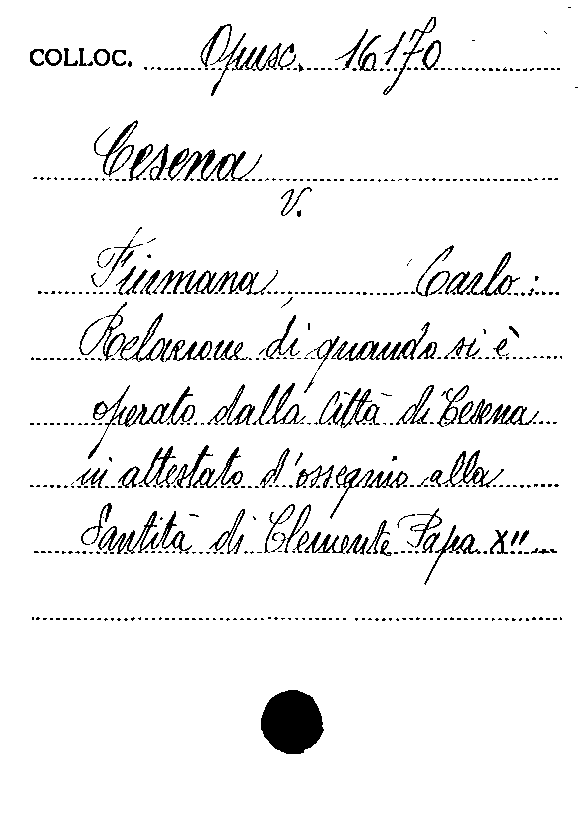 COLLOC. Opusc. 16170
Cesena
V.
Firmana, Carlo:
Relazione di quando si è
operato dalla Città di Cesena
in attestato d'ossequio alla
Santità di Clemente Papa XII...